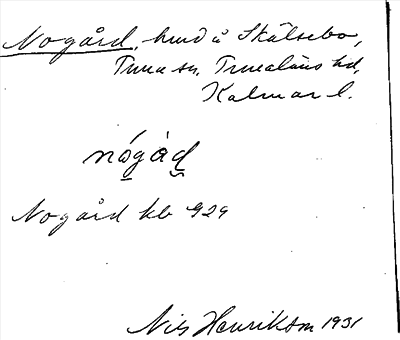 Nogård, hmd å Skälsebo,
Tuna sn, Tunaläns hd,
Kalmar l.
nógàd
Nogård kb 929
Nils Henrikson 1931